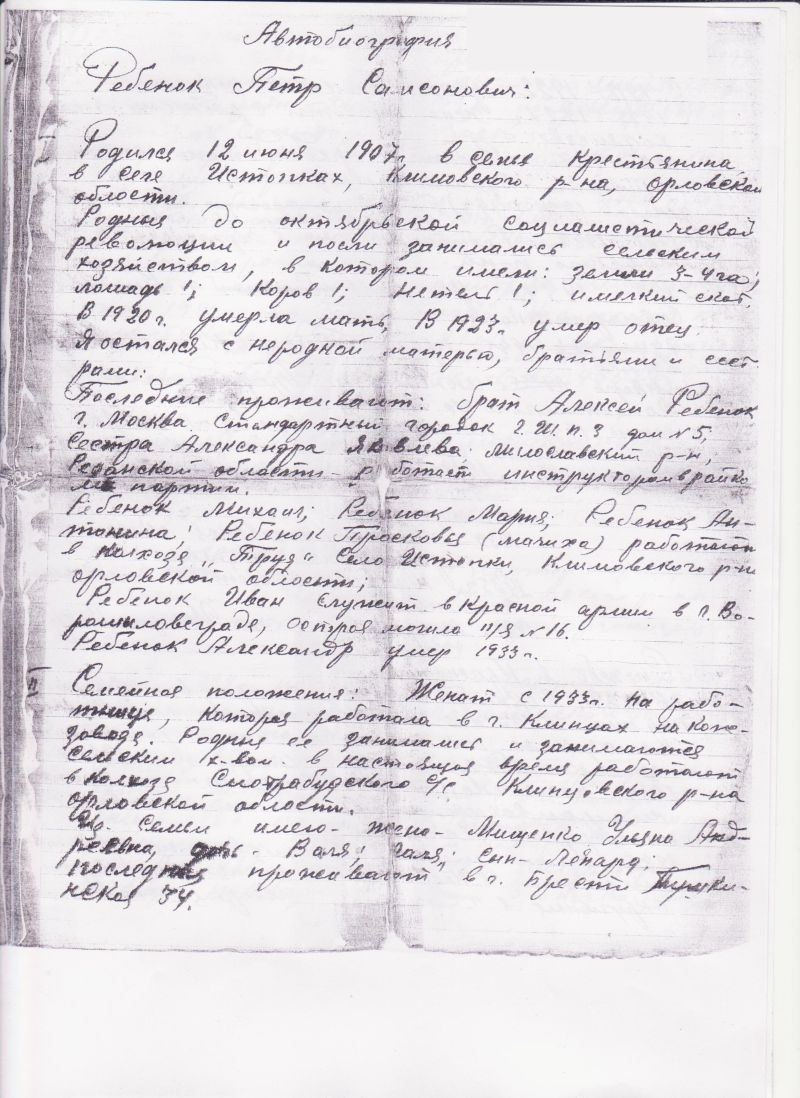 Автобиография
Ребенок Петр Самсонович:
I
Родился 12 июня 1907 г. в семье крестьянина
в селе Истопках, Климовского р-на, орловской
области.
Родные до октябрьской социалистической
революции и после занимались сельским
хозяйством, в котором имели: земли 3-4 га;
лошадь 1; Коров 1; нетель 1; и мелкий скот.
В 1920 г. умерла мать, В 1923 г. умер отец
Я остался с неродной матерью, братьями и сест
рами:
Последние проживают: брат Алексей Ребенок
г. Москва Стандартный городок 2. Ш. п. 3 дом №5,
Сестра Александра Яковлева Милославский р-н,
Резанской области - работает инструктором в райко
ме партии.
Ребенок Михаил; Ребенок Мария; Ребенок Ан-
тонина; Ребенок Просковья (мачиха) работают
в колхозе "Труд" село Истопки, Климовского р-на
орловской области;
Ребенок Иван служит в Красной армии в г. Во-
рошиловеграде, острая могила п/я №16.
Ребенок Александр умер 1933 г.
II
Семейное положения: Женат с 1933 г. на рабо-
тнице, которая работала в г. Клинцах на коже-
заводе, Родные ее занимались и занимаются
сельским х-вом. в настоящее время работают
в колхозе Смотрабудского с/с Клинцовского р-на
орловской области.
Из семьи имею - жено - Мищенко Ульяно Анд-
реевна, дочь - Валя, Галя; сын - Леонард;
последния проживают в г. Бресте
нская 34.